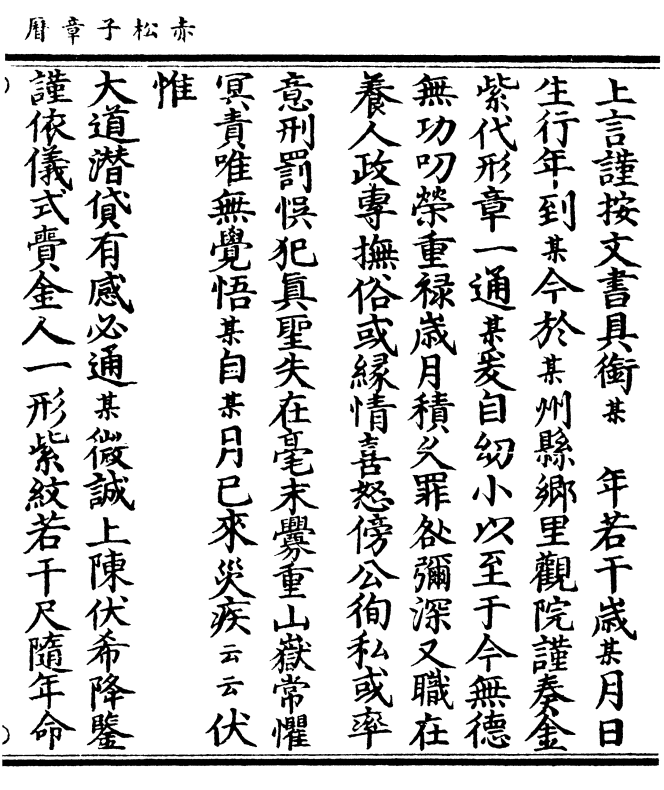 赤松子章曆
上言謹按文書具銜某　年若干歲某月日
生行年到某今於某州縣鄉里觀院謹奏金
紫代形章一通某爰自幼小以至于今無德
無功叨榮重禄歲月積久罪咎彌深又職在
養人政專撫俗或緣情喜怒傍公徇私或率
意刑罰悞犯眞聖失在毫末舋重山嶽常懼
冥責唯無覺悟某自某月已來災疾云云伏
惟
大道潜貸有感必通某微誠上陳伏希降鑒
謹依儀式賷金人一形紫紋若干尺隨年命